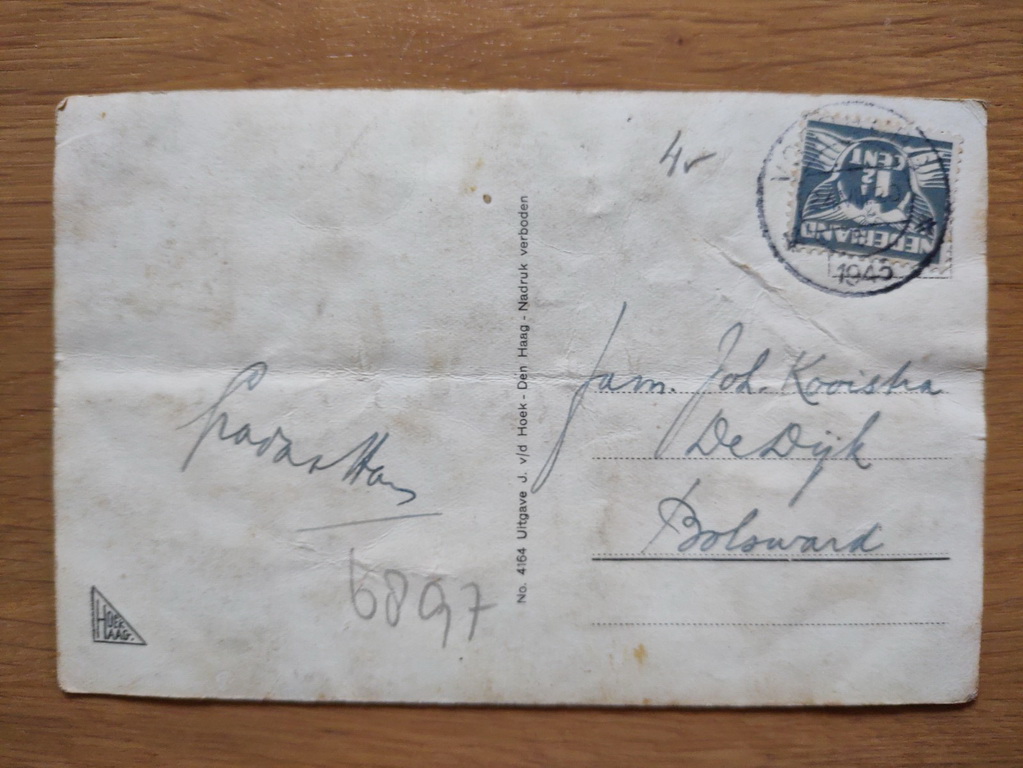 4
1½
CENT
NEDERLAND
1943
No. 4164 Uitgave J. v/d Hoek - Den Haag - Nadruk verboden
Fam. Joh. Kooistra
De Dijk
Bolsward
6897
HOEK
HAAG.